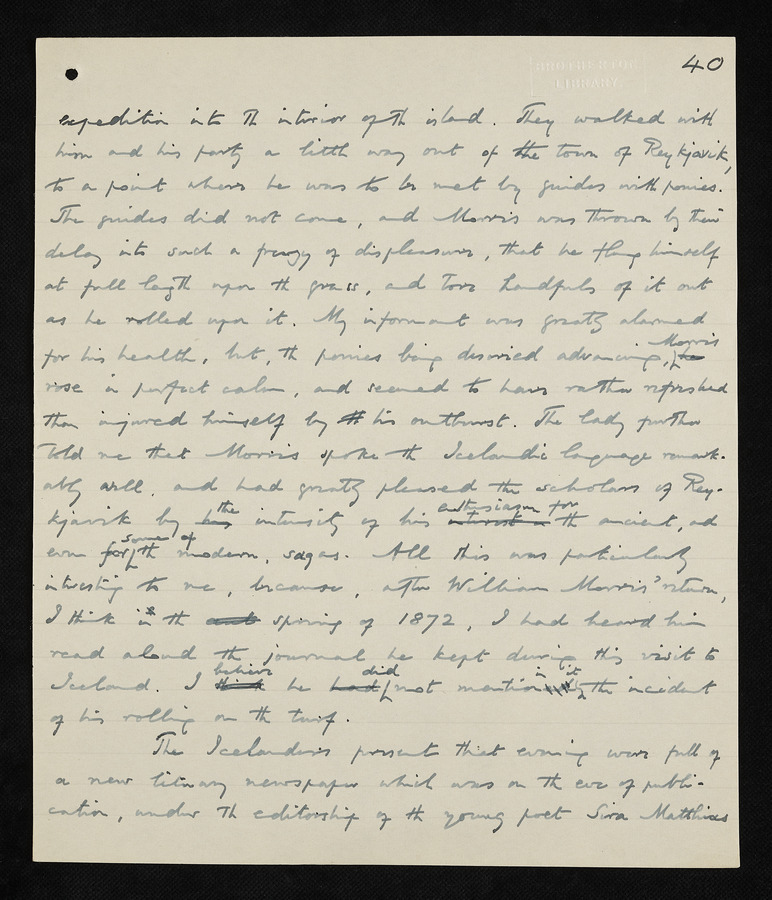 40
BROTHERTON
LIBRARY
expedition into th interior of th island. They walked with
him and his party a little way out of the town of Reykjavik,
to a point where he was to be met by guides with ponies.
The guides did not come, and Morris was thrown by their
delay into such a frenzy of displeasure, that he flung himself
at full length upon th grass, and tore handfuls of it out
as he rolled upon it. My informant was greatly alarmed
for his health, but, th ponies being descried advancing, he Morris
rose in perfect calm, and seemed to have rather refreshed
than injured himself by th his outburst. The lady further
told me that Morris spoke th Icelandic language remark-
ably well, and had greatly pleased the scholars of Rey-
kjavik by his the intensity of his interest in enthusiasm for th ancient, and
even for some of th modern, sagas. All this was particularly
interesting to me, because, after William Morris' return,
I think in th spring of 1872, I had heard him
read aloud th journal he kept during this visit to
Iceland. I think believe he had did not mention in it the incident
of his rolling on th turf.
The Icelanders present that evening were full of
a new literary newspaper which was on th eve of publi-
cation, under th editorship of th young poet Sira Matthias